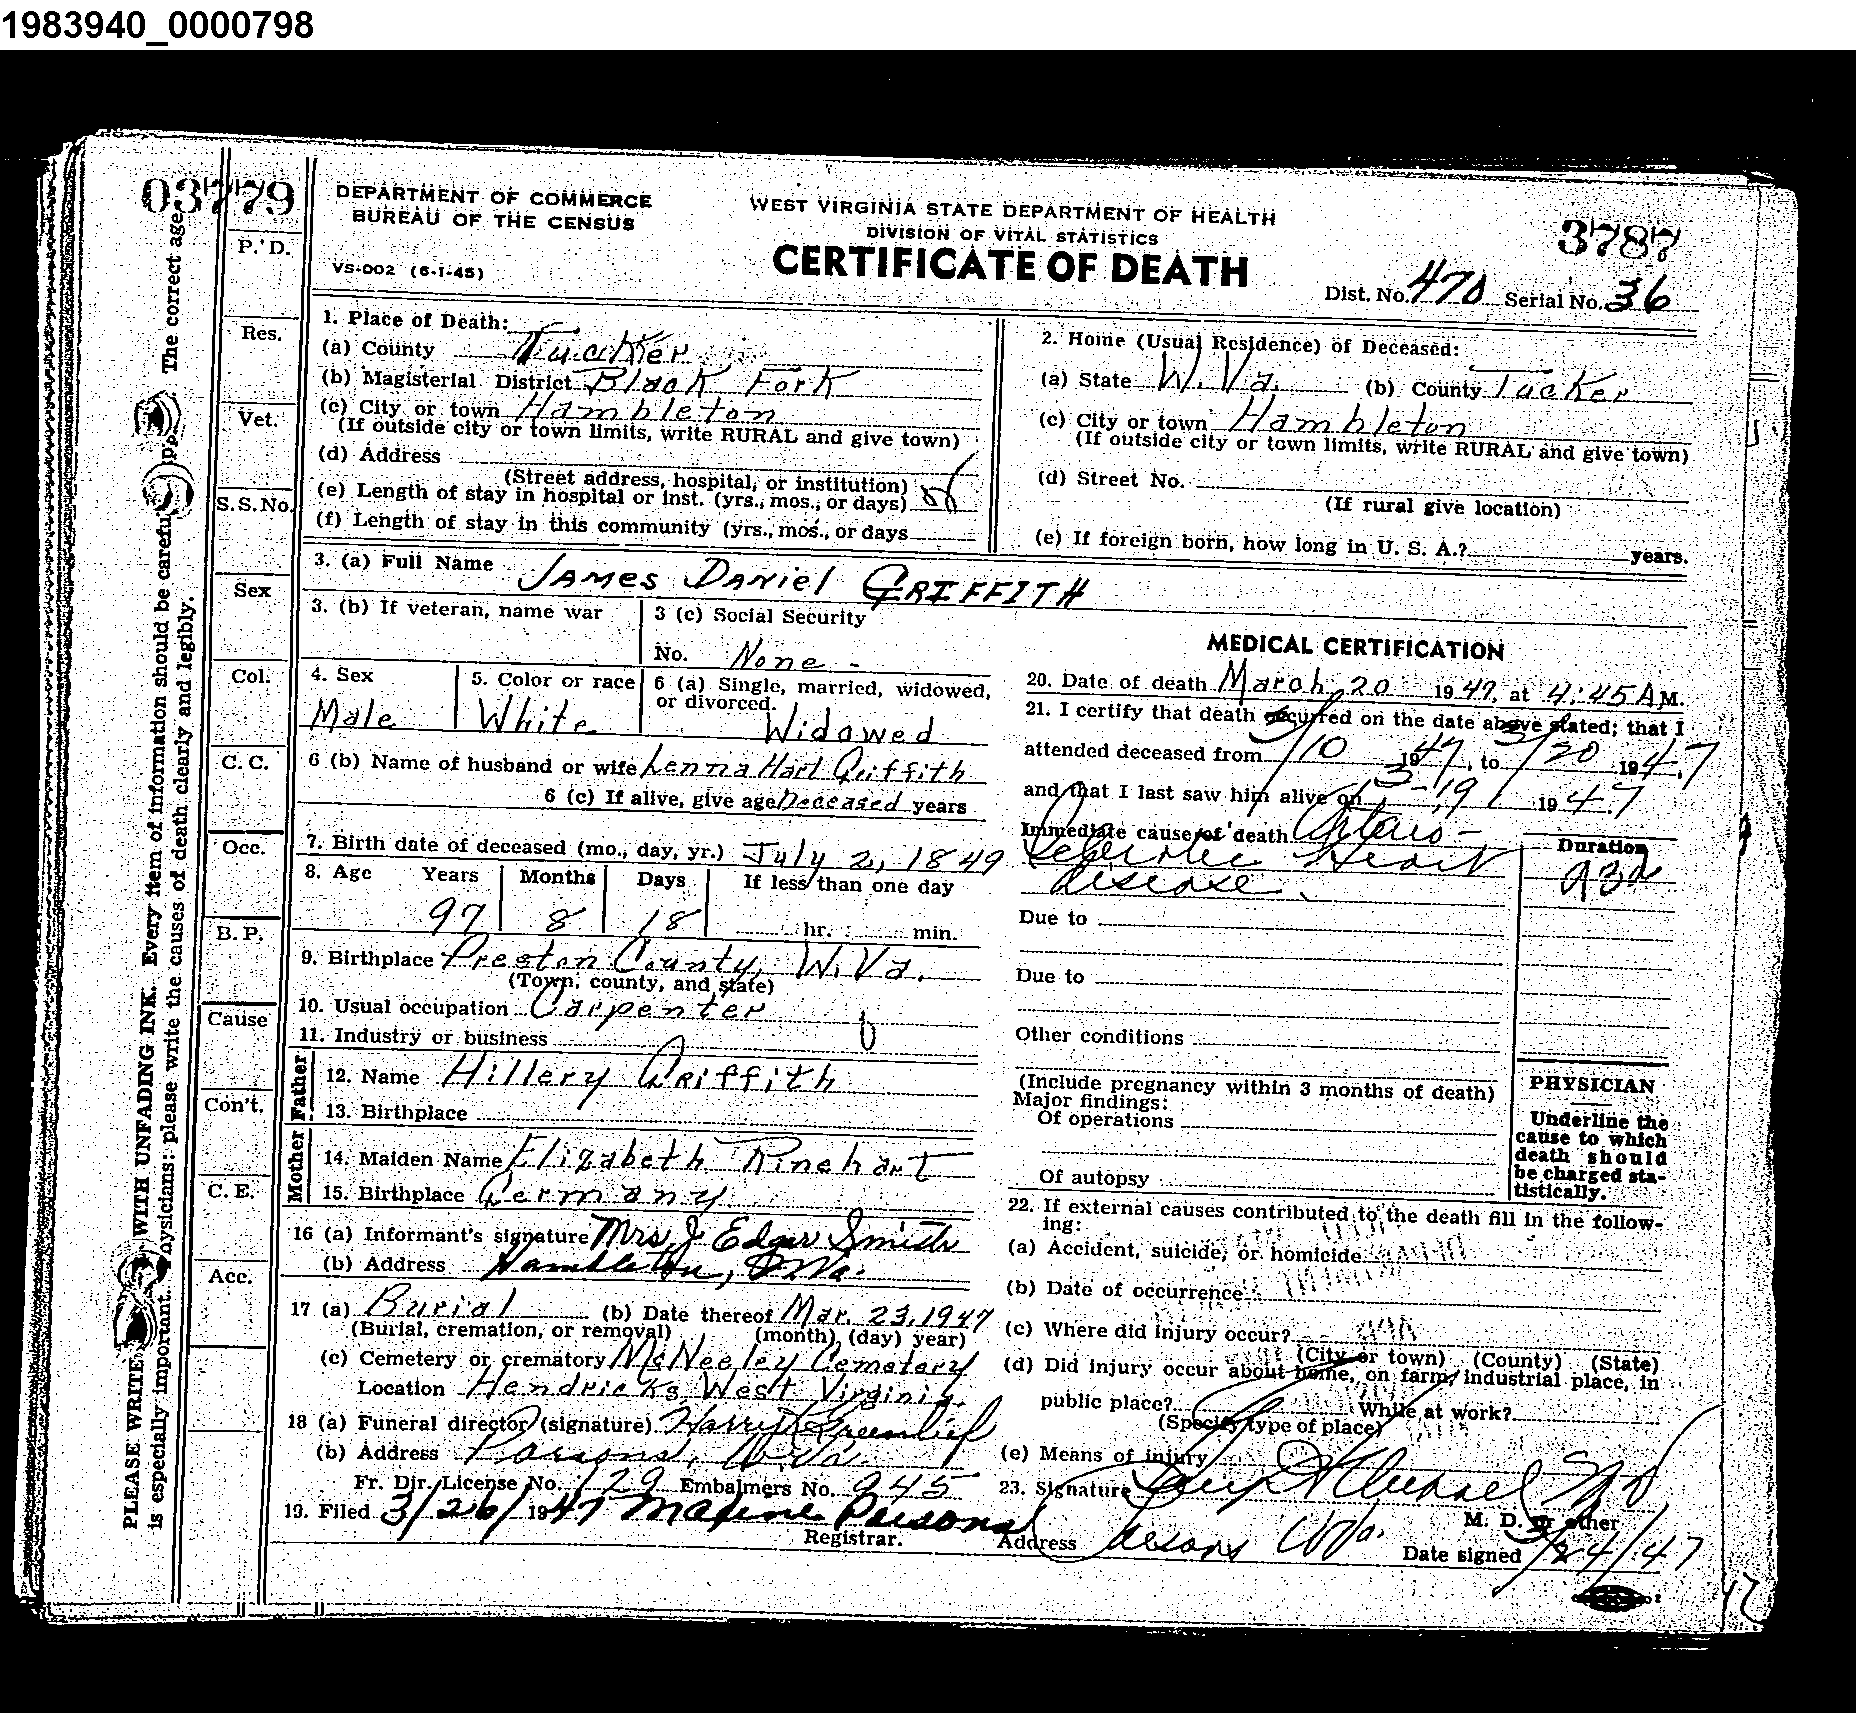 1983940_0000798
03779
DEPARTMENT OF COMMERCE
BUREAU OF THE CENSUS
VS-002 (6-1-45)
WEST VIRGINIA STATE DEPARTMENT OF HEALTH
DIVISION OF VITAL STATISTICS
CERTIFICATE OF DEATH
3787
Dist. No. 470 Serial No. 36
P. D.
Res.
Vet.
S.S.No.
Sex
Col.
C. C.
Occ.
B. P.
Cause
Con't.
C. E.
Acc.
PLEASE WRITE WITH UNFADING INK. Every item of information should be carefu pp d. The correct age
is especially important. ysicians: please write the causes of death clearly and legibly.
1. Place of Death:
(a) County Tucker
(b) Magisterial District Black Fork
(c) City or town Hambleton
(If outside city or town limits, write RURAL and give town)
(d) Address
(Street address, hospital, or institution)
(e) Length of stay in hospital or inst. (yrs., mos., or days)
(f) Length of stay in this community (yrs., mos., or days
2. Home (Usual Residence) of Deceased:
(a) State W. Va. (b) County Tucker
(c) City or town Hambleton
(If outside city or town limits, write RURAL and give town)
(d) Street No.
(If rural give location)
(e) If foreign born, how long in U. S. A.? years.
3. (a) Full Name JAMES DANiel GRIFFITH
3. (b) If veteran, name war
3 (c) Social Security
No. None -
4. Sex
Male
5. Color or race
White
6 (a) Single, married, widowed,
or divorced.
Widowed
6 (b) Name of husband or wife Lenna Hart Griffith
6 (c) If alive, give age Deceased years
7. Birth date of deceased (mo., day, yr.) July 2, 1849
8. Age Years Months Days If less than one day
97 8 18 hr. min.
9. Birthplace Preston County, W. Va.
(Town, county, and state)
10. Usual occupation Carpenter
11. Industry or business
Father
12. Name Hillery Griffith
13. Birthplace
Mother
14. Maiden Name Elizabeth Rinehart
15. Birthplace Germany
16 (a) Informant's signature Mrs. J Edgar Smith
(b) Address Hambleton, W.Va.
17 (a) Burial (b) Date thereof Mar. 23, 1947
(Burial, cremation, or removal) (month) (day) year)
(c) Cemetery or crematory McNeeley Cemetery
Location Hendricks West Virginia.
18 (a) Funeral director (signature) Harry Greenlief
(b) Address Parsons, W.Va.
Fr. Dir. License No. 129 Embalmers No. 945
19. Filed 3/26/1947 Maxine Parsons
Registrar.
MEDICAL CERTIFICATION
20. Date of death March 20 1947, at 4:45 A M.
21. I certify that death occurred on the date above stated; that I
attended deceased from 3/10 1947, to 3/20 1947
and that I last saw him alive on 3-19 1947
Immediate cause of death Arterio-
Sclerotic Heart
disease.
Duration
Due to
Due to
Other conditions
(Include pregnancy within 3 months of death)
Major findings:
Of operations
Of autopsy
PHYSICIAN
Underline the
cause to which
death should
be charged sta-
tistically.
22. If external causes contributed to the death fill in the follow-
ing:
(a) Accident, suicide, or homicide
(b) Date of occurrence
(c) Where did injury occur?
(City or town) (County) (State)
(d) Did injury occur about home, on farm, industrial place, in
public place? While at work?
(Specify type of place)
(e) Means of injury
23. Signature MD
M. D. or other
Address Parsons W Va. Date signed 3/24/47
47